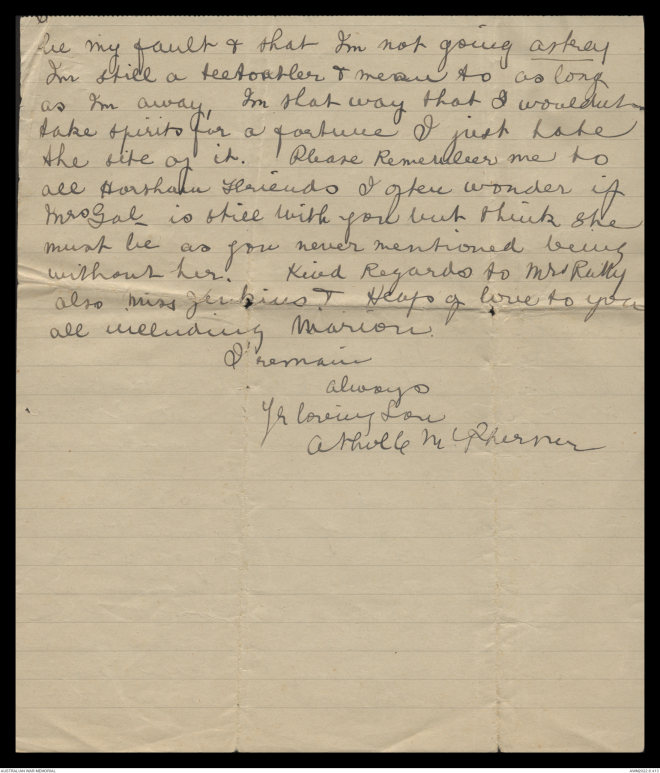 be my fault & that I'm not going askey
I'm still a teetoatler & mean to as long
as I'm away, I'm that way that I wouldnt
take spirits for a fortune I just hate
the site of it. Please Remember me to
all Horsham Friends I often wonder if
Mrs Gal is still with you but think she
must be as you never mentioned being
without her. Kind Regards to Mrs Ratty
also Miss Jenkins. & Heaps of love to you
all including Marion.
I remain
always
Yr loving Son
Atholle McPherson
AUSTRALIAN WAR MEMORIAL